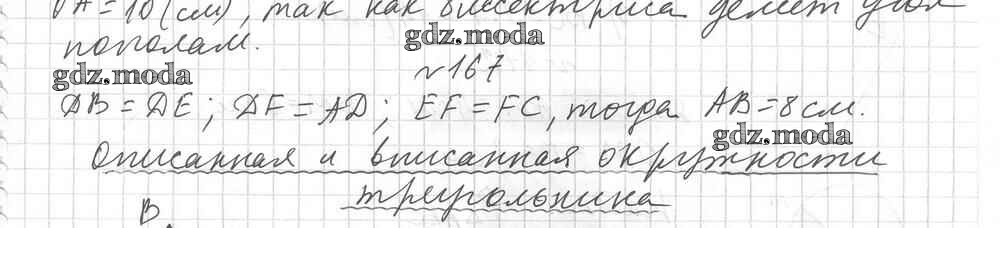 A = 10 (см), так как биссектриса делит угол
пополам.
gdz.moda
gdz.moda
№167
DB = DE; DF = AD; EF = FC, тогда AB = 8 см.
gdz.moda
Описанная и вписанная окружности
треугольника
B